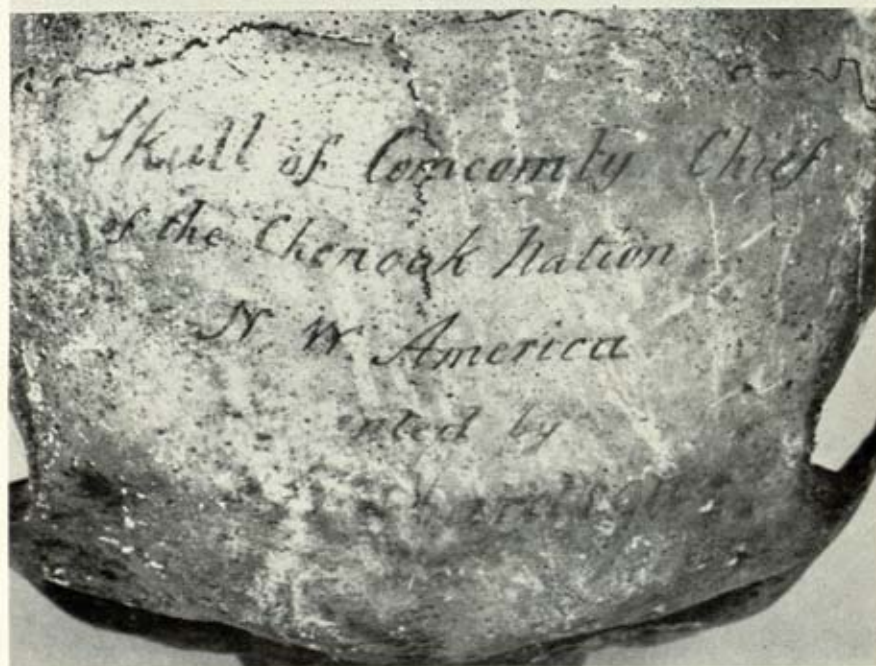 Skull of Comcomly Chief
of the Chenook Nation
N. W. America
ented by